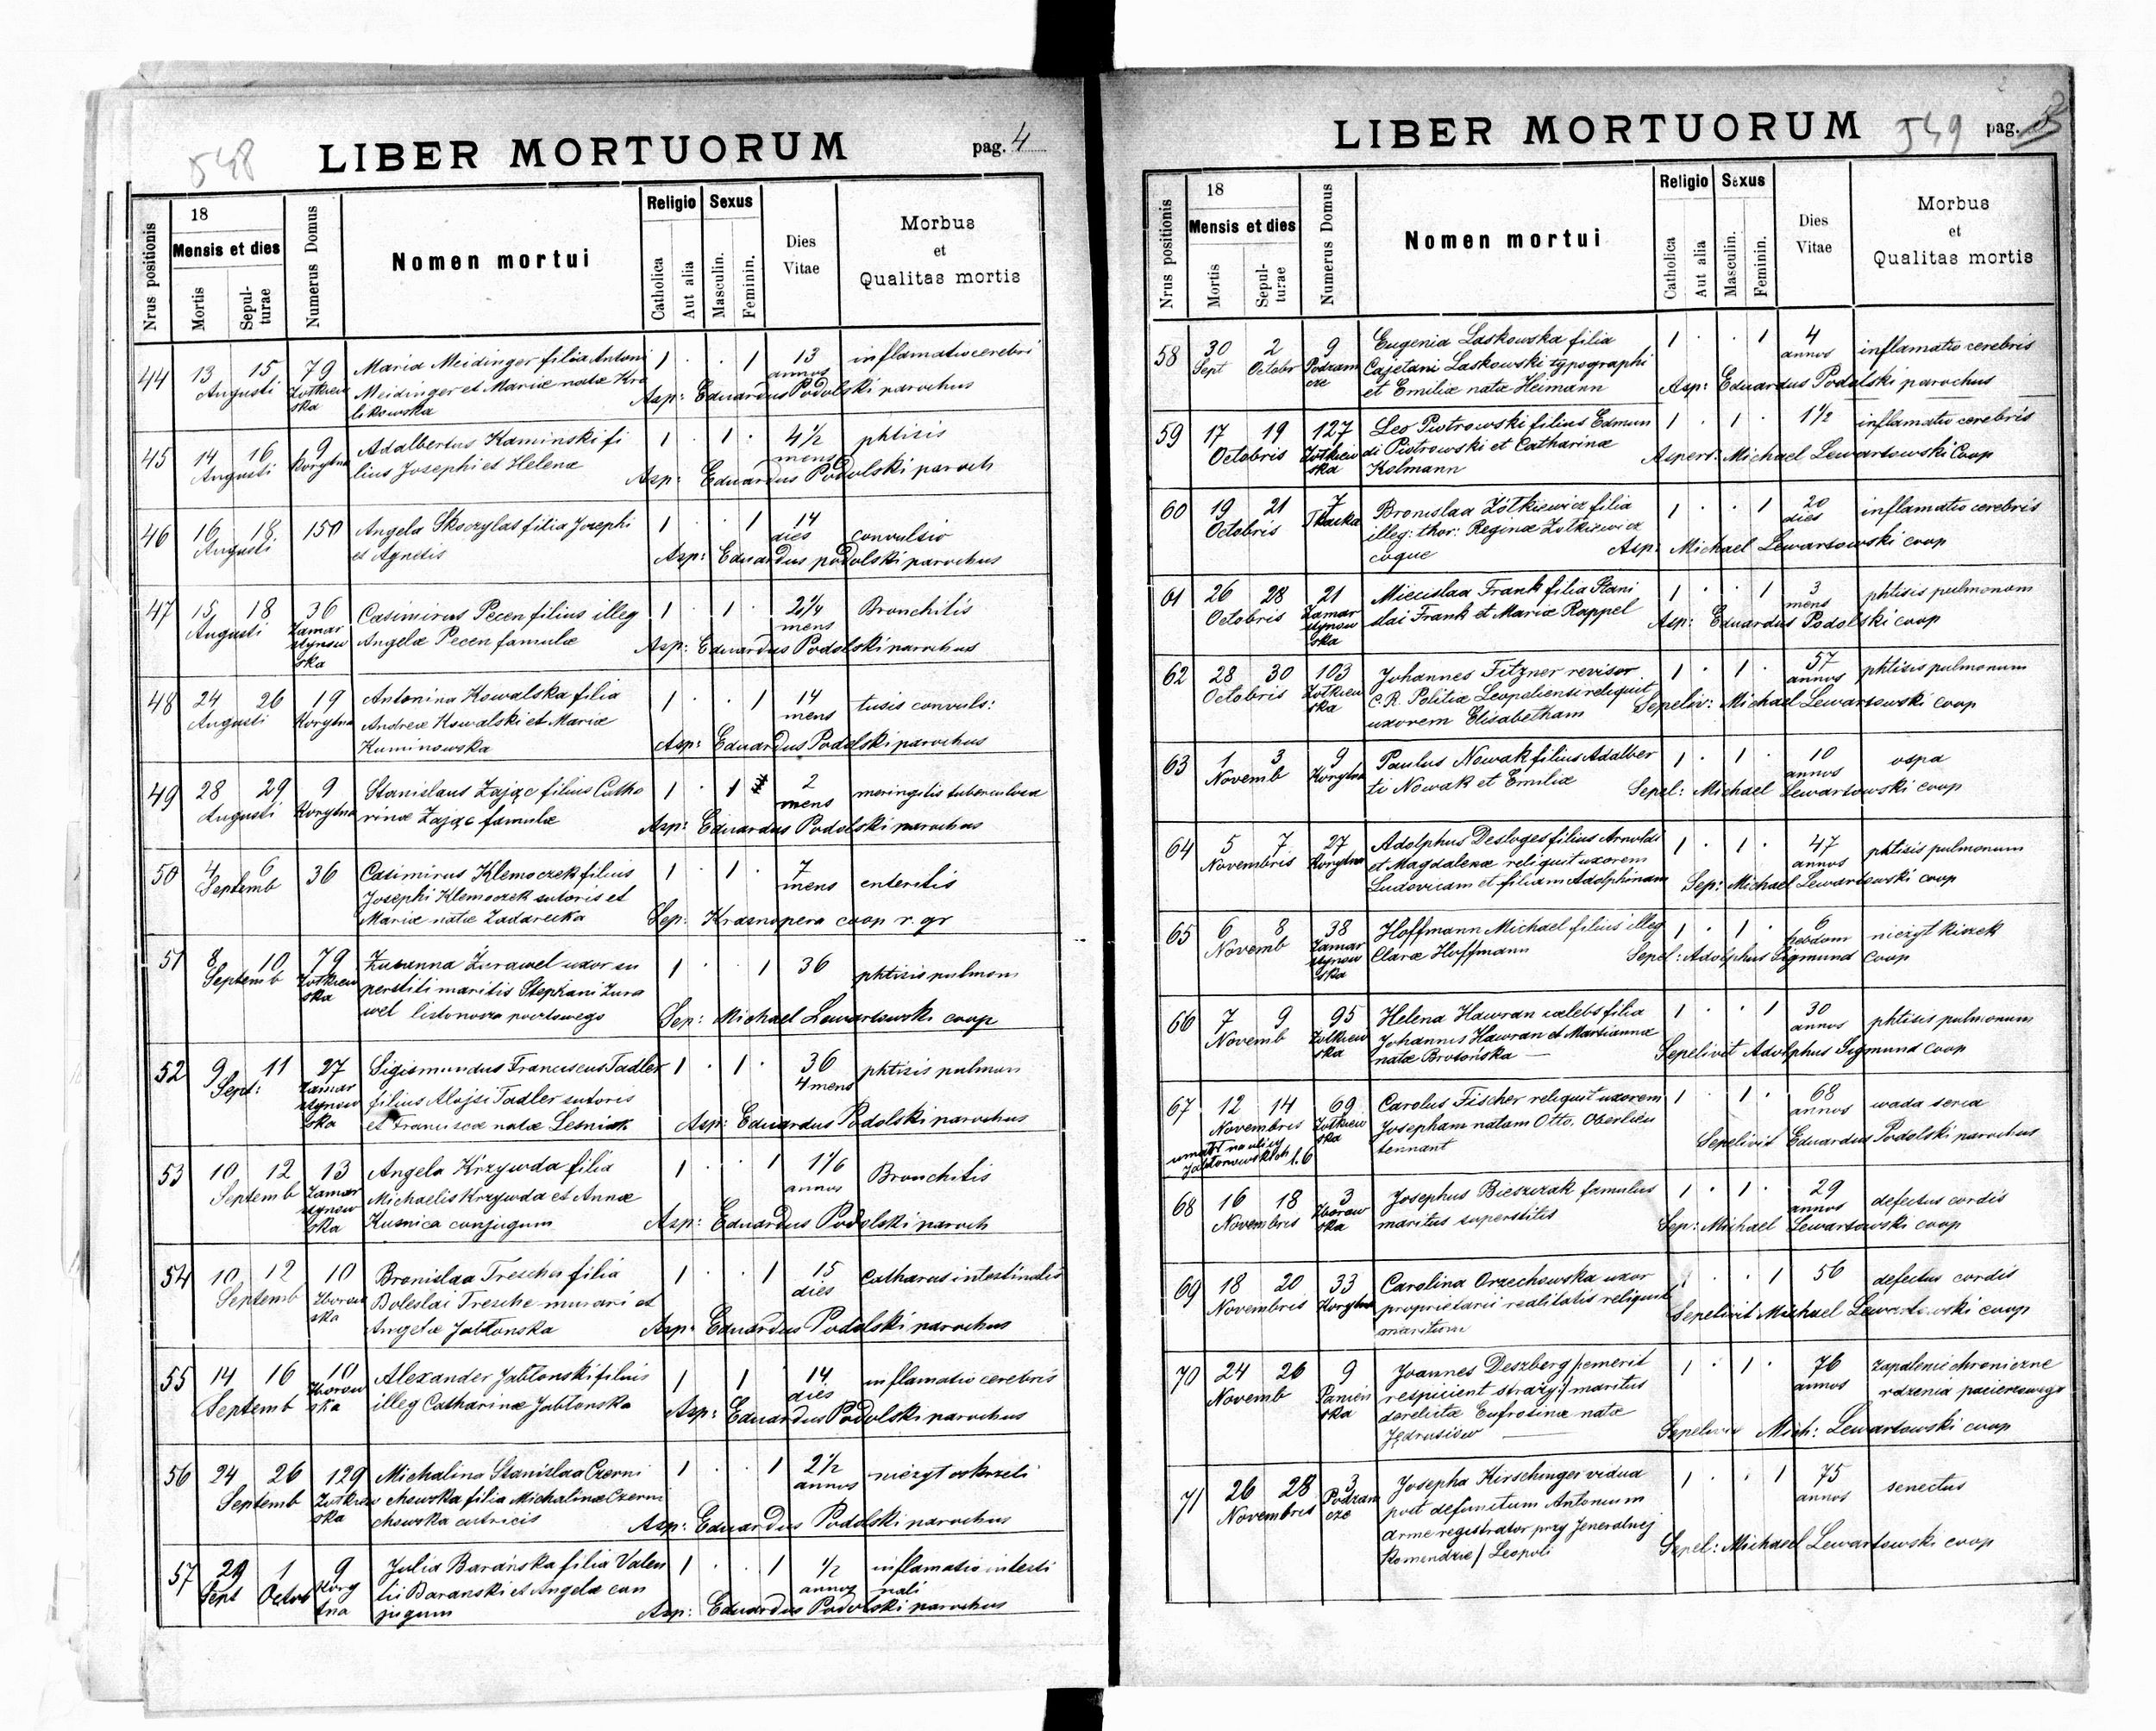 548
LIBER MORTUORUM
pag. 4
Nrus positionis
18
Mensis et dies
Mortis
Sepul-
turae
Numerus Domus
Nomen mortui
Religio
Catholica
Aut alia
Sexus
Masculin.
Feminin.
Dies
Vitae
Morbus
et
Qualitas mortis
44 13 15 79 Maria Meidinger filia Antoni 1 . . 1 13 inflamatio cerebri
Augusti Żołkiew Meidinger et Mariæ natæ Kro annos
ska likowska Asp: Eduardus Podolski parochus
45 14 16 9 Adalbertus Kaminski fi 1 . 1 . 4½ phtisis
Augusti Korytna lius Josephi et Helenæ mens
Asp: Eduardus Podolski paroch
46 16 18 150 Angela Skoczylas filia Josephi 1 . . 1 14 convulsio
Augusti et Agnetis dies
Asp: Eduardus podolski parochus
47 15 18 36 Casimirus Pecen filius illeg 1 . 1 . 2¼ Bronchitis
Augusti Zamar Angelæ Pecen famulæ mens
stynow Asp: Eduardus Podolski parochus
ska
48 24 26 19 Antonina Kowalska filia 1 . . 1 14 tusis convuls:
Augusti Korytna Andreæ Kowalski et Mariæ mens
Kuminowska Asp: Eduardus Podolski parochus
49 28 29 9 Stanislaus Zając filius Catha 1 . 1 2 meningitis tuberculosa
Augusti Korytna rinæ Zając famulæ mens
Asp: Eduardus Podolski parochus
50 4 6 36 Casimirus Klemoczek filius 1 . 1 . 7 enteritis
Septemb Josephi Klemoczek sutoris et mens
Mariæ natæ Zadarecka Sep: Krasnopera coop r. gr
51 8 10 79 Zuzanna Żurawel uxor su 1 . . 1 36 phtisis pulmon
Septemb Żołkiew perstiti maritis Stephani Żura
ska wel listonosza pocztowego Sep: Michael Lewartowski coop
52 9 11 27 Sigismundus Franciscus Tadler 1 . 1 . 36 phtisis pulmon
Sept: Zamar filius Alojsi Tadler sutoris 4 mens
stynow et Franciscæ natæ Lesniak Asp: Eduardus Podolski parochus
ska
53 10 12 13 Angela Krzywda filia 1 . . 1 1 1/6 Bronchitis
Septemb Zamar Michaelis Krzywda et Annæ annos
stynow Kusnica conjugum Asp: Eduardus Podolski paroch
ska
54 10 12 10 Bronislaa Tresche filia 1 . . 1 15 Catharus intestinalis
Septemb Zborow Boleslai Tresche murari et dies
ska Angelæ Jabłonska Asp: Eduardus Podolski parochus
55 14 16 10 Alexander Jabłonski filius 1 1 . 14 inflamatio cerebris
Septemb Zborow illeg Catharinæ Jabłonska dies
ska Asp: Eduardus Podolski parochus
56 24 26 129 Michalina Stanislaa Czerni 1 . . 1 2½ nieżyt oskrzeli
Septemb Żołkiew chowska filia Michalinæ Czerni annos
ska chowska cutricis Asp: Eduardus Podolski parochus
57 29 1 9 Julia Barańska filia Valen 1 . . 1 ½ inflamatio intesti
Sept Octob Kory tii Baranski et Angelæ con annos nali
tna jugum Asp: Eduardus Podolski parochus
LIBER MORTUORUM
549
pag.
Nrus positionis
18
Mensis et dies
Mortis
Sepul-
turae
Numerus Domus
Nomen mortui
Religio
Catholica
Aut alia
Sexus
Masculin.
Feminin.
Dies
Vitae
Morbus
et
Qualitas mortis
58 30 2 9 Eugenia Laskowska filia 1 . . 1 4 inflamatio cerebris
Sept Octobr Podzam Cajetani Laskowski typographi annos
cze et Emiliæ natæ Heimann Asp: Eduardus Podolski parochus
59 17 19 127 Leo Piotrowski filius Edmun 1 . 1 . 1½ inflamatio cerebris
Octobris Żołkiew di Piotrowski et Catharinæ
ska Kolmann Aspers: Michael Lewartowski Coop
60 19 21 7 Bronislaa Żółkiewicz filia 1 . . 1 20 inflamatio cerebris
Octobris Tkacka illeg: thor: Reginæ Zołkiewicz dies
coquæ Asp: Michael Lewartowski coop
61 26 28 21 Miecislaa Frank filia Stani 1 . . 1 3 phtisis pulmonom
Octobris Zamar slai Frank et Mariæ Rappel mens
stynow Asp: Eduardus Podolski coop
ska
62 28 30 103 Johannes Fitzner revisor 1 . 1 . 57 phtisis pulmonum
Octobris Żołkiew C. R. Politiæ Leopoliensi reliquit annos
ska uxorem Elisabetham Sepeliv: Michael Lewartowski coop
63 1 3 9 Paulus Nowak filius Adalber 1 . 1 . 10 ospa
Novemb Korytna ti Nowak et Emiliæ annos
Sepel: Michael Lewartowski coop
64 5 7 27 Adolphus Desloges filius Arnoldi 1 . 1 . 47 phtisis pulmonum
Novembris Korytna et Magdalenæ reliquit uxorem annos
Ludovicam et filiam Adolphinam Sep: Michael Lewartowski coop
65 6 8 38 Hoffmann Michael filius illeg 1 . 1 . 6 nieżyt kiszek
Novemb Zamar Claræ Hoffmann hebdom
stynow Sepel: Adolphus Sigmund Coop
ska
66 7 9 95 Helena Hawran cælebs filia 1 . . 1 30 phtisis pulmonum
Novemb Żołkiew Johannis Hawran et Mariannæ annos
ska natæ Brotońska — Sepelivit Adolphus Sigmund coop
67 12 14 69 Carolus Fischer reliquit uxorem 1 . 1 . 68 wada serca
Novembris Żołkiew Josepham natam Otto, Oberlieu annos
ska tennant Sepelivit Eduardus Podolski parochus
umarł na ulicy
Jabłonowskich l. 6
68 16 18 3 Josephus Bieszczak famulus 1 . 1 . 29 defectus cordis
Novembris Zborow maritus superstitis annos
ska Sep: Michael Lewartowski coop
69 18 20 33 Carolina Orzechowska uxor 1 . . 1 56 defectus cordis
Novembris Korytna proprietarii realitatis reliquit
maritum Sepelivit Michael Lewartowski coop
70 24 26 9 Joannes Deszberg /:emerit 1 . 1 . 76 zapalenie chroniczne
Novemb Panień respicient straży:/ maritus annos rdzenia pacierzowego
ska derelictæ Eufrosinæ natæ
Jędrusiow — Sepelivit Mich: Lewartowski coop
71 26 28 3 Josepha Kirschinger vidua 1 . . 1 75 senectus
Novembris Podzam post defunctum Antonium annos
cze arme registrator przy Jeneralnej
Komendzie/ Leopoli Sepel: Michael Lewartowski coop